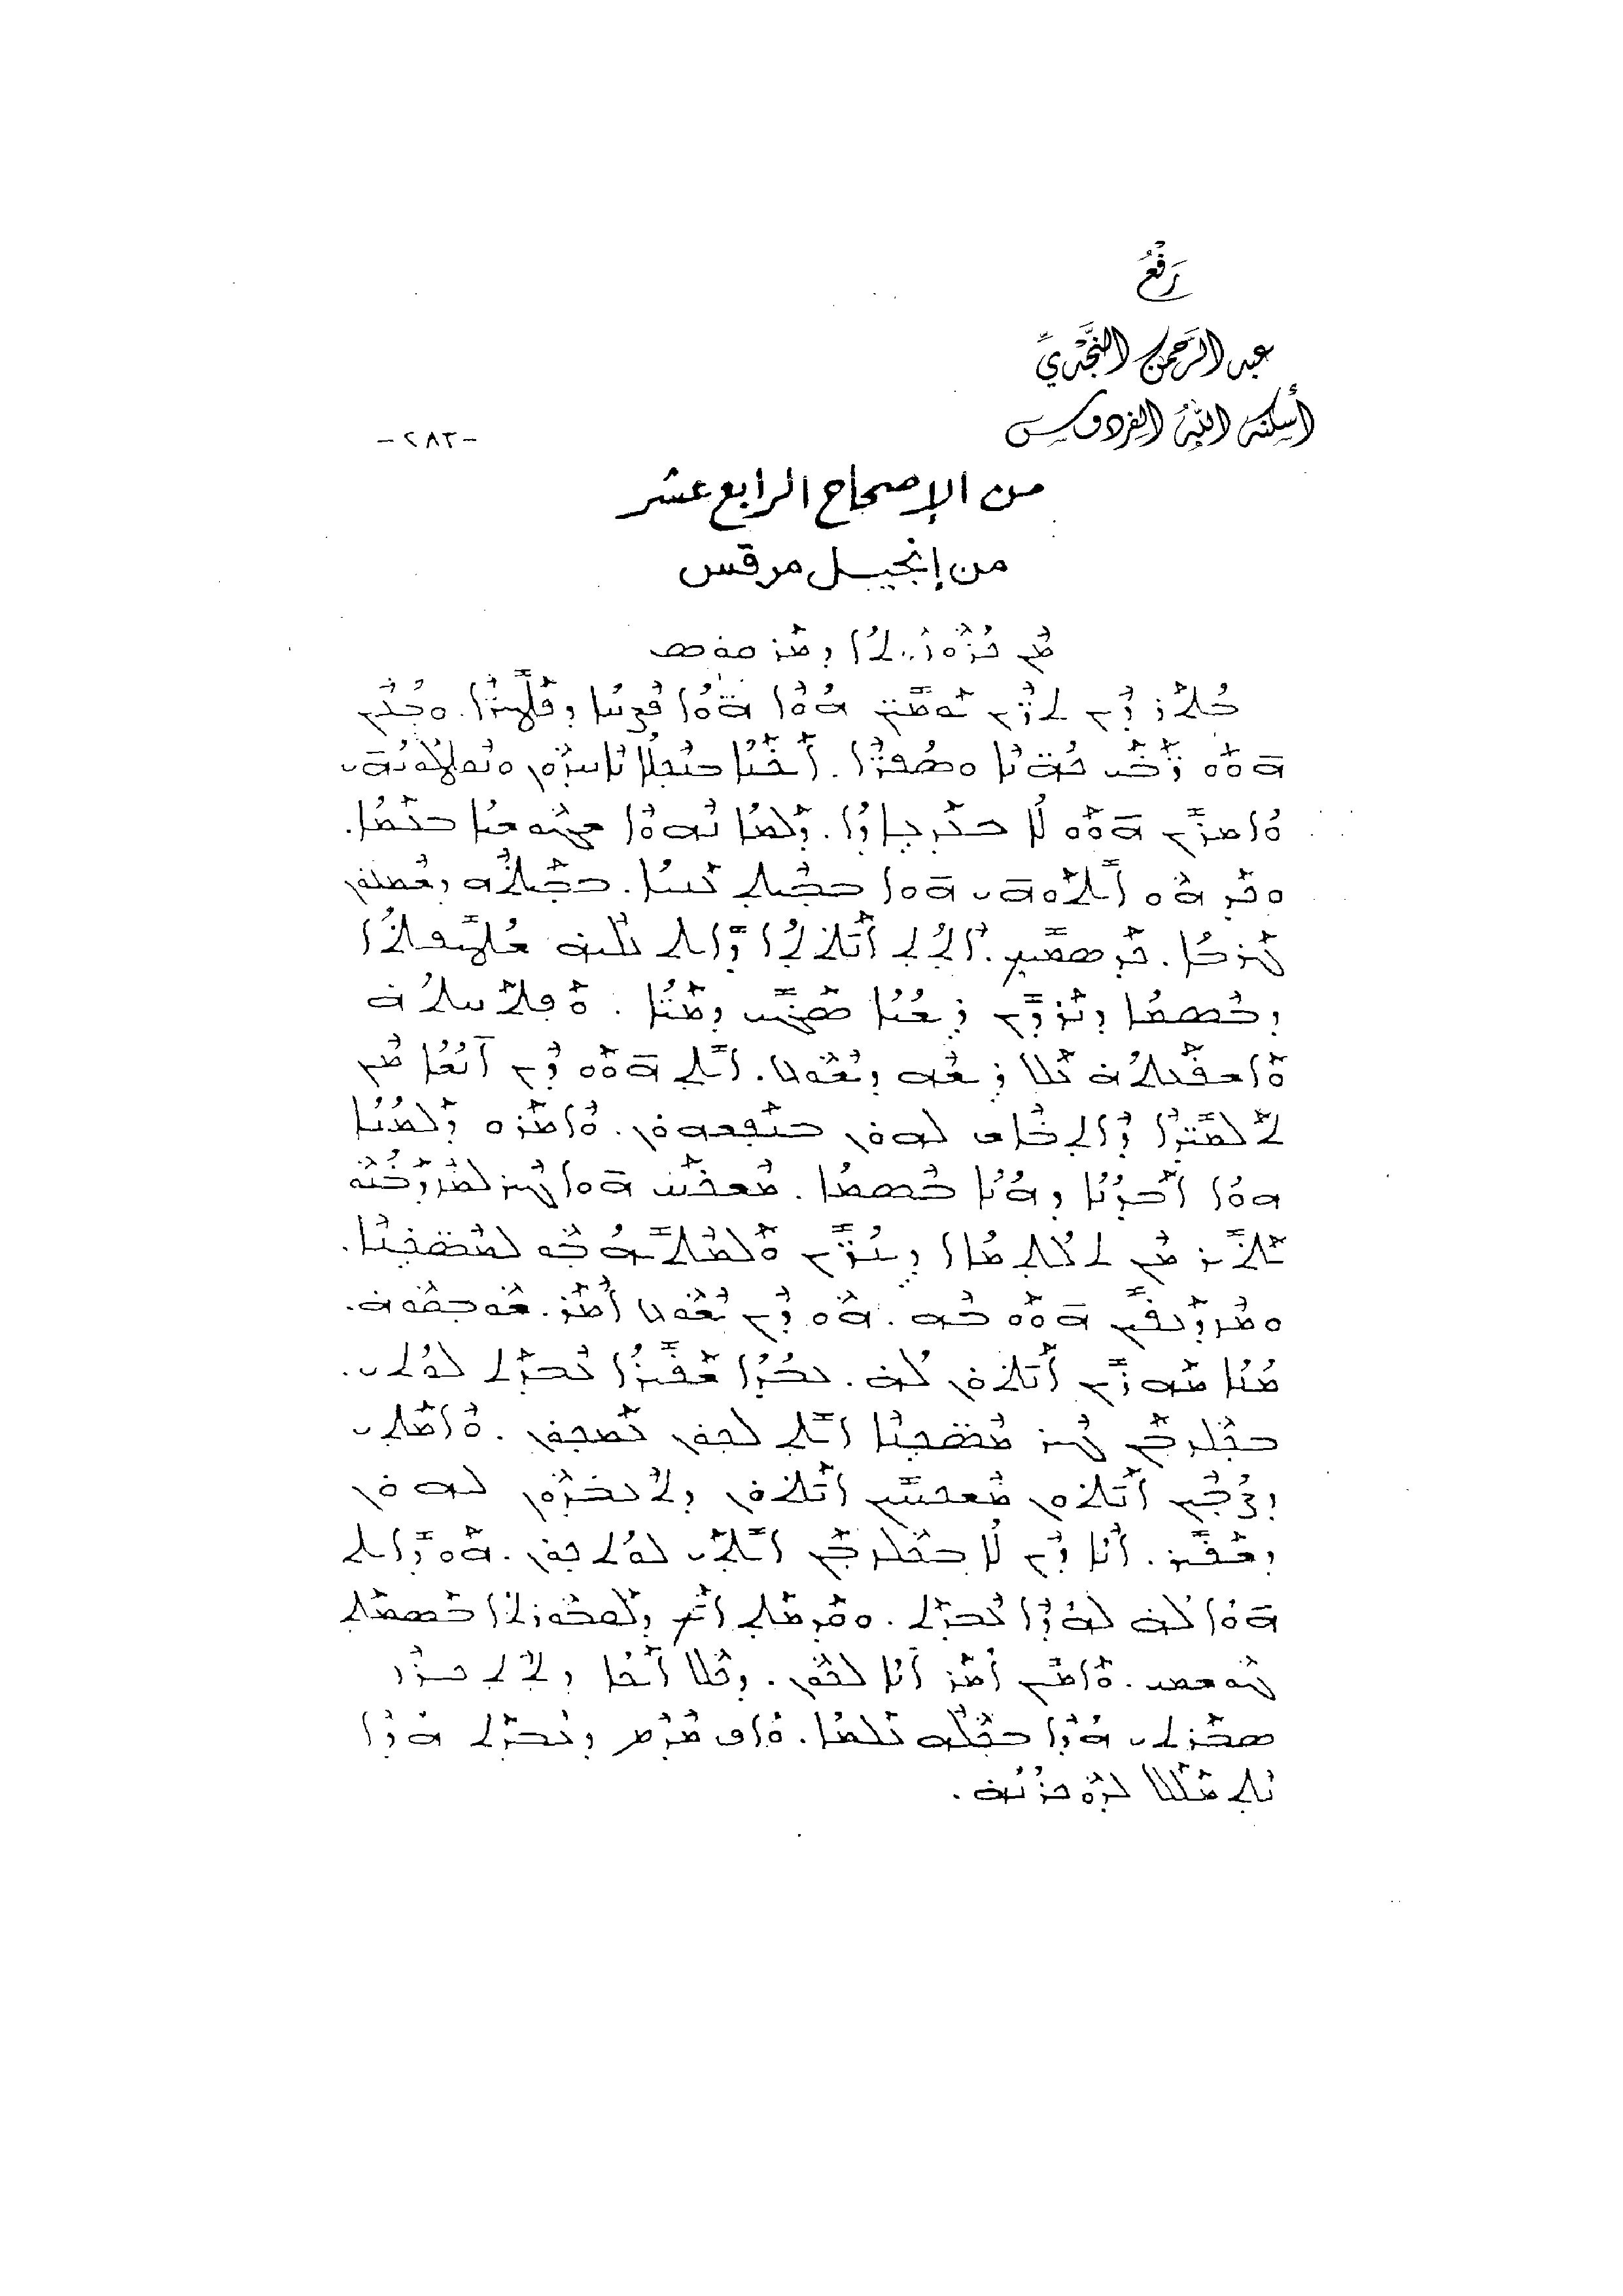 رفع
عبد الرحمن النجدي
أسكنه الله الفردوس
-٢٨٢-
من الإصحاح الرابع عشر
من إنجيل مرقس
ܡܢ ܟܪܘܙܘܬܐ ܕܡܪܩܘܣ
ܒܬܪ ܕܝܢ ܬܪܝܢ ܝܘܡܝܢ ܗܘܐ ܗܘܐ ܦܨܚܐ ܕܦܛܝܪܐ. ܘܒܥܝܢ
ܗܘܘ ܪܒܝ ܟܗܢܐ ܘܣܦܪܐ. ܐܝܟܢܐ ܒܢܟܠܐ ܢܐܚܕܘܢ ܘܢܩܛܠܘܢܝܗܝ
ܘܐܡܪܝܢ ܗܘܘ ܠܐ ܒܥܕܥܐܕܐ. ܕܠܡܐ ܢܗܘܐ ܫܓܘܫܝܐ ܒܥܡܐ.
ܘܟܕ ܗܘ ܐܝܬܘܗܝ ܗܘܐ ܒܒܝܬ ܥܢܝܐ. ܒܒܝܬܗ ܕܫܡܥܘܢ
ܓܪܒܐ. ܟܕ ܣܡܝܟ. ܐܬܬ ܐܢܬܬܐ ܕܐܝܬ ܥܠܝܗ ܫܛܝܦܬܐ
ܕܒܣܡܐ ܕܢܪܕܝܢ ܪܫܝܐ ܣܓܝ ܕܡܝܐ. ܘܦܬܚܬܗ
ܘܐܫܦܥܬܗ ܥܠ ܪܫܗ ܕܝܫܘܥ. ܐܝܬ ܗܘܘ ܕܝܢ ܐܢܫܐ ܡܢ
ܬܠܡܝܕܐ ܕܐܬܒܐܫ ܠܗܘܢ ܒܢܦܫܗܘܢ. ܘܐܡܪܘ ܕܠܡܢܐ
ܗܘܐ ܐܒܕܢܐ ܕܗܢܐ ܒܣܡܐ. ܡܫܟܚ ܗܘܐ ܓܝܪ ܠܡܙܕܒܢܘ
ܝܬܝܪ ܡܢ ܬܠܬܡܐܐ ܕܝܢܪܝܢ ܘܠܡܬܝܗܒܘ ܠܡܣܟܢܐ.
ܘܡܙܕܥܦܝܢ ܗܘܘ ܒܗ. ܗܘ ܕܝܢ ܝܫܘܥ ܐܡܪ. ܫܘܒܩܘܗ.
ܡܢܐ ܡܗܪܝܢ ܐܢܬܘܢ ܠܗ. ܥܒܕܐ ܫܦܝܪܐ ܥܒܕܬ ܠܘܬܝ.
ܒܟܠܙܒܢ ܓܝܪ ܡܣܟܢܐ ܐܝܬ ܠܟܘܢ ܥܡܟܘܢ. ܘܐܡܬܝ
ܕܨܒܝܢ ܐܢܬܘܢ ܡܫܟܚܝܢ ܐܢܬܘܢ ܕܬܥܒܕܘܢ ܠܗܘܢ
ܕܫܦܝܪ. ܐܢܐ ܕܝܢ ܠܐ ܒܟܠܙܒܢ ܐܝܬܝ ܠܘܬܟܘܢ. ܗܘ ܕܐܝܬ
ܗܘܐ ܠܗ ܠܗܕܐ ܥܒܕܬ. ܘܩܕܡܬ ܐܝܟ ܕܠܩܒܘܪܬܐ ܒܣܡܬ
ܓܘܫܡܝ. ܘܐܡܝܢ ܐܡܪ ܐܢܐ ܠܟܘܢ. ܕܟܠ ܐܝܟܐ ܕܬܬܟܪܙ
ܣܒܪܬܝ ܗܕܐ ܒܟܠܗ ܥܠܡܐ. ܘܐܦ ܡܕܡ ܕܥܒܕܬ ܗܕܐ
ܢܬܡܠܠ ܠܕܘܟܪܢܗ.